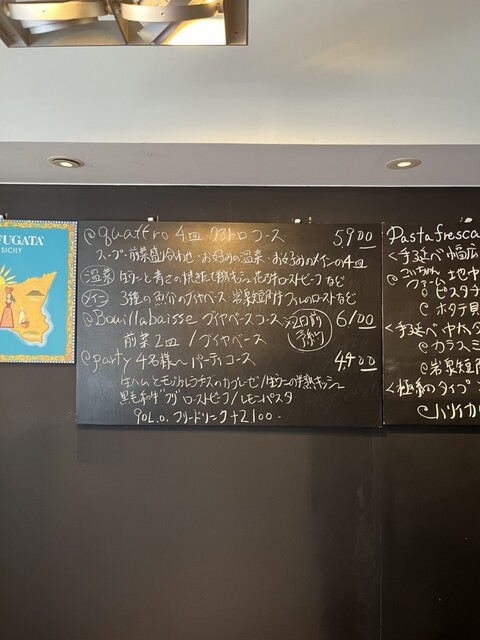 FUGATA
SICILY
@quattro 4皿 クワトロコース 5900
スープ・前菜盛り合わせ・お好みの温菜・お好みのメインの4皿
温菜 など
メイン 3種の魚介のブイヤベース 岩泉短角牛フィレのローストなど
@Bouillabaisse ブイヤベースコース 2日前予約 6100
前菜2皿 / ブイヤベース
@party 4名様〜パーティコース 4400
生ハムとモッツァレラチーズのカプレーゼ /
黒毛和牛 ローストビーフ / レモンパスタ
90L.O. フリードリンク+2100-
Pasta fresca
<手延べ 幅広
ピスタチ
ホタテ貝
<手延べ 中太
カラスミ
岩泉短
<極細のタイプ